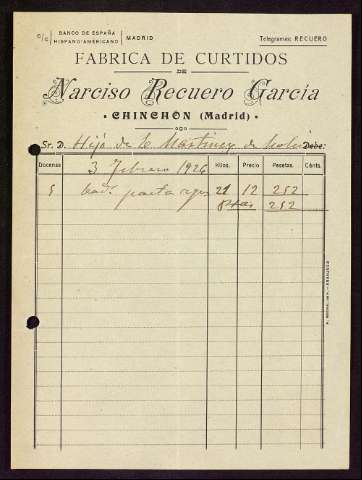 c/c BANCO DE ESPAÑA HISPANO-AMERICANO MADRID
Telegramas: RECUERO
FABRICA DE CURTIDOS
DE
Narciso Recuero Garcia
CHINCHÓN (Madrid)
Sr. D. Hijo de E. Martinez de Debe:
Docenas Kilos. Precio Pesetas. Cénts.
3 Febrero 1926
5 21 12 252
Ptas 252